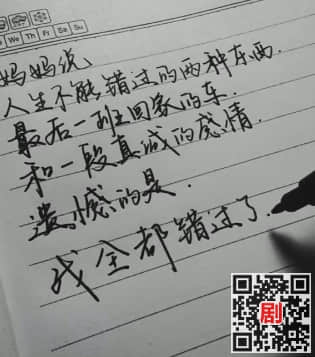 We Th Fr Sa Su
妈妈说、
人生不能错过的两种东西.
最后一班回家的车.
和一段真诚的感情.
遗憾的是.
我全都错过了.
剧